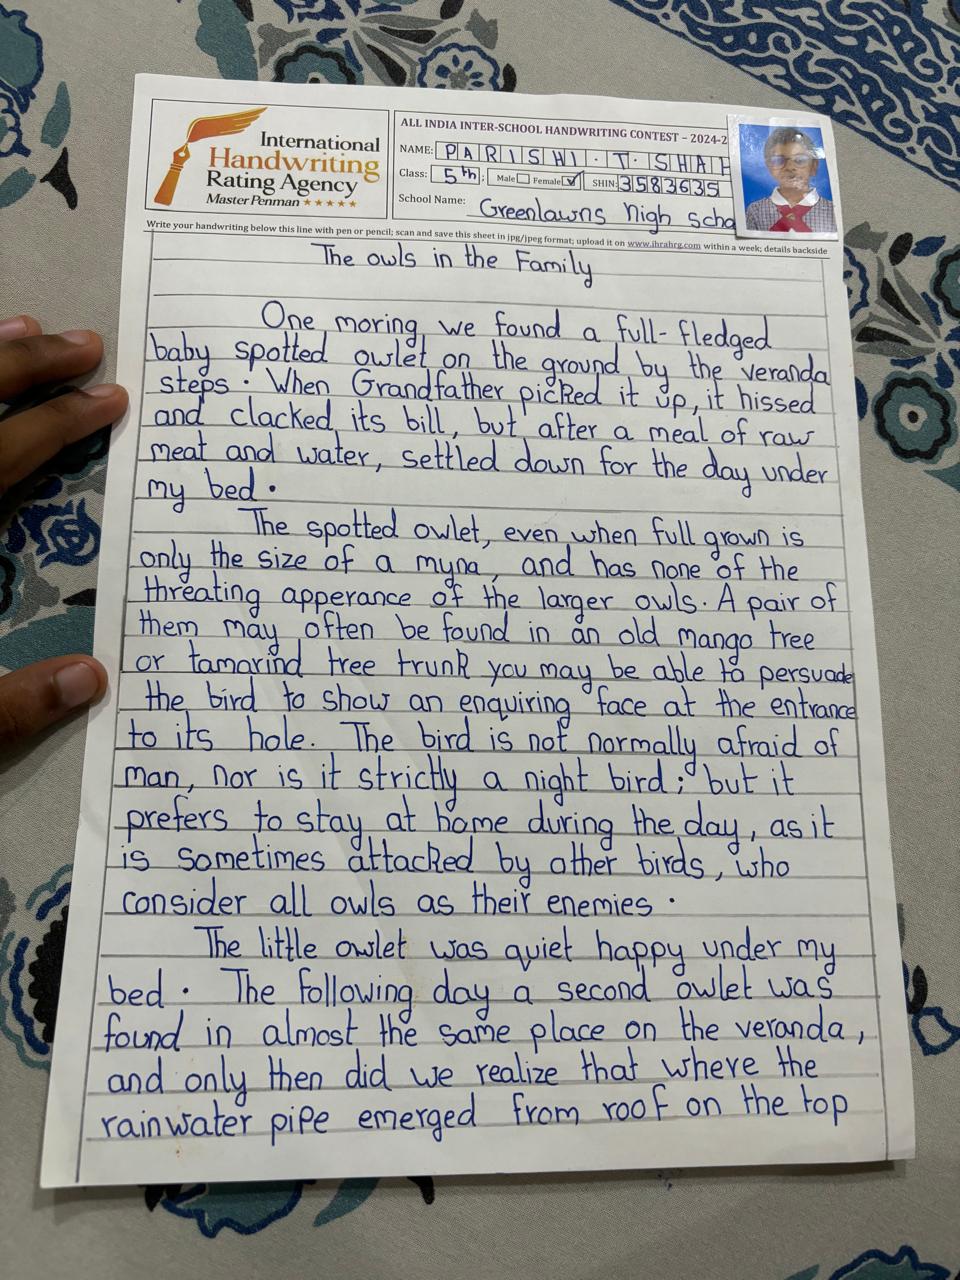 International
Handwriting
Rating Agency
Master Penman ★★★★★
ALL INDIA INTER-SCHOOL HANDWRITING CONTEST – 2024-2
NAME: PARISHI · T · SHAH
Class: 5th Male Female ✓ SHIN: 3583635
School Name: Greenlawns high scho
Write your handwriting below this line with pen or pencil; scan and save this sheet in jpg/jpeg format; upload it on www.ihrahrg.com within a week; details backside
The owls in the Family
One moring we found a full-fledged
baby spotted owlet on the ground by the veranda
steps. When Grandfather picked it up, it hissed
and clacked its bill, but after a meal of raw
meat and water, settled down for the day under
my bed.
The spotted owlet, even when full grown is
only the size of a myna, and has none of the
threating apperance of the larger owls. A pair of
them may often be found in an old mango tree
or tamarind tree trunk you may be able to persuade
the bird to show an enquiring face at the entrance
to its hole. The bird is not normally afraid of
man, nor is it strictly a night bird; but it
prefers to stay at home during the day, as it
is sometimes attacked by other birds, who
consider all owls as their enemies.
The little owlet was quiet happy under my
bed. The following day a second owlet was
found in almost the same place on the veranda,
and only then did we realize that where the
rainwater pipe emerged from roof on the top